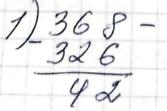 1) 368 -
- 326
42